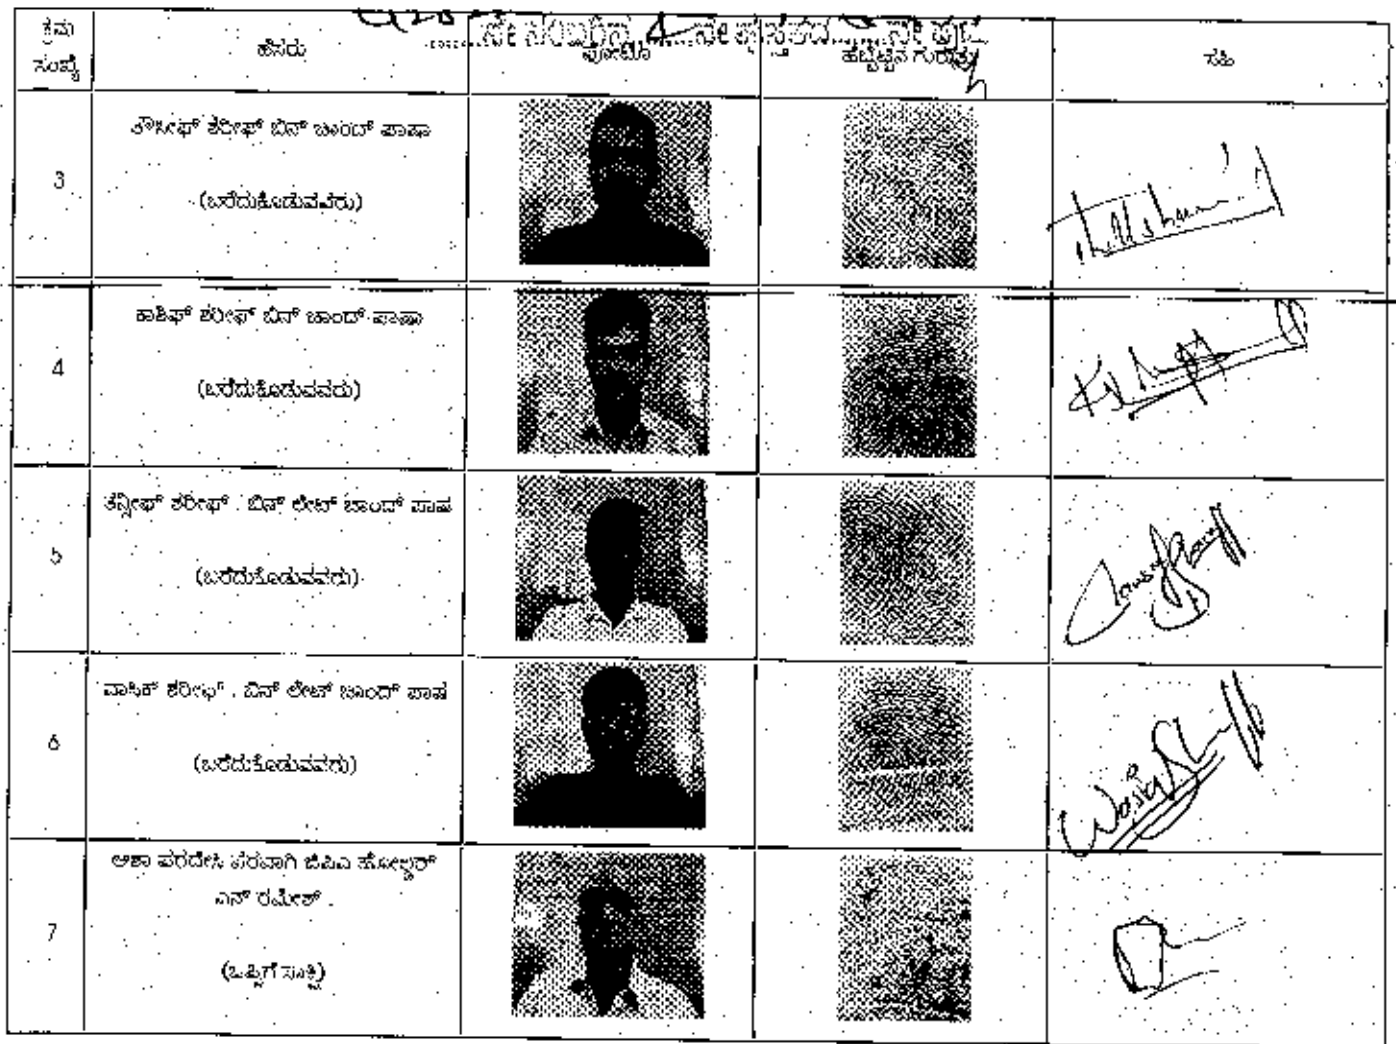 ನೇ ನಂಬರಿನ 4 ನೇ ಪುಸ್ತಕದ ನೇ ಪುಟ
ಕ್ರಮ ಸಂಖ್ಯೆ ಹೆಸರು ಫೋಟೊ ಹೆಬ್ಬೆಟ್ಟಿನ ಗುರುತು ಸಹಿ
ತೌಸೀಫ್ ಶರೀಫ್ ಬಿನ್ ಚಾಂದ್ ಪಾಷಾ
3
(ಬರೆದುಕೊಡುವವರು)
ಕಾಶಿಫ್ ಶರೀಫ್ ಬಿನ್ ಚಾಂದ್ ಪಾಷಾ
4
(ಬರೆದುಕೊಡುವವರು)
ಶರೀಫ್ . ಬಿನ್ ಲೇಟ್ ಚಾಂದ್ ಪಾಷ
5
(ಬರೆದುಕೊಡುವವರು)
ವಾಸಿಕ್ ಶರೀಫ್ . ಬಿನ್ ಲೇಟ್ ಚಾಂದ್ ಪಾಷ
6
(ಬರೆದುಕೊಡುವವರು)
Wasiq
ಆಶಾ ಪರದೇಸಿ ಪರವಾಗಿ ಜಿಪಿಎ ಹೋಲ್ಡರ್
ಎನ್ ರಮೇಶ್ .
7
(ಒಪ್ಪಿಗೆ ಸಾಕ್ಷಿ)